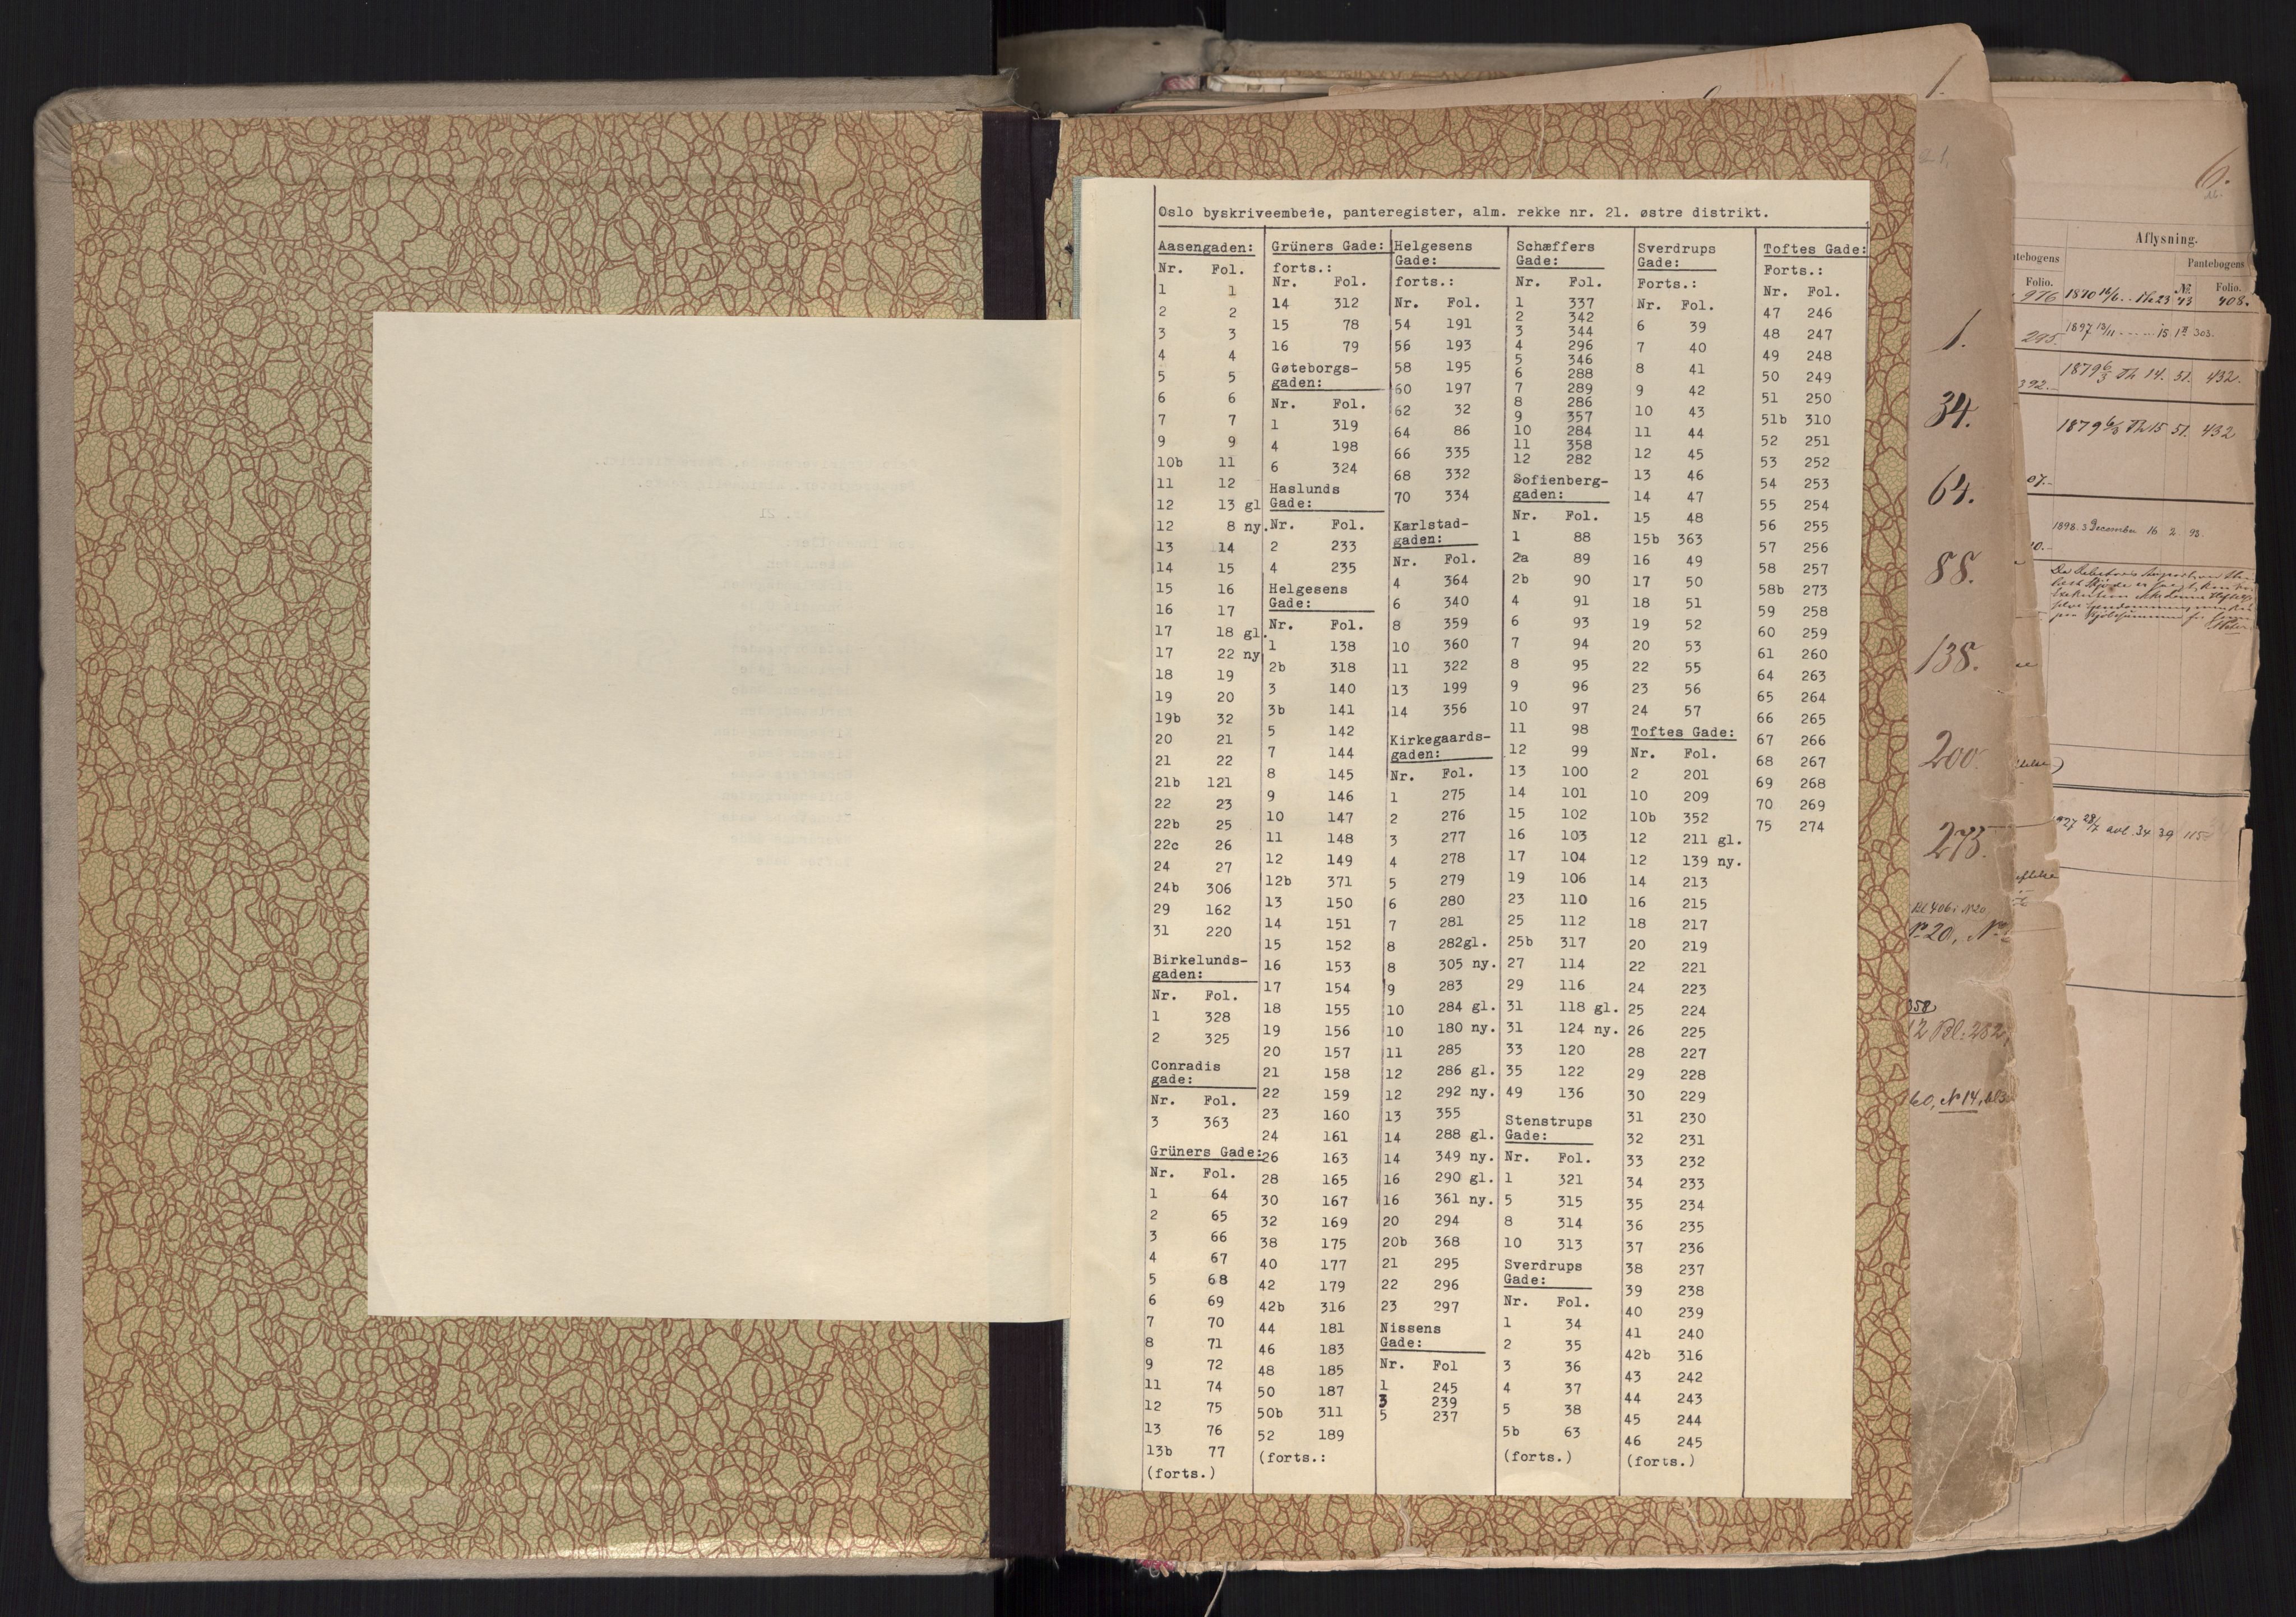 Oslo byskriveembete, panteregister, alm. rekke nr. 21. østre distrikt.
Aasengaden:
Nr. Fol.
1 1
2 2
3 3
4 4
5 5
6 6
7 7
9 9
10b 11
11 12
12 13 gl
12 8 ny.
13 14
14 15
15 16
16 17
17 18 gl.
17 22 ny
18 19
19 20
19b 32
20 21
21 22
21b 121
22 23
22b 25
22c 26
24 27
24b 306
29 162
31 220
Birkelunds-
gaden:
Nr. Fol.
1 328
2 325
Conradis
gade:
Nr. Fol.
3 363
Grüners Gade:
Nr. Fol.
1 64
2 65
3 66
4 67
5 68
6 69
7 70
8 71
9 72
11 74
12 75
13 76
13b 77
(forts.)
Grüners Gade:
forts.:
Nr. Fol.
14 312
15 78
16 79
Gøteborgs-
gaden:
Nr. Fol.
1 319
4 198
6 324
Haslunds
Gade:
Nr. Fol.
2 233
4 235
Helgesens
Gade:
Nr. Fol.
1 138
2b 318
3 140
3b 141
5 142
7 144
8 145
9 146
10 147
11 148
12 149
12b 371
13 150
14 151
15 152
16 153
17 154
18 155
19 156
20 157
21 158
22 159
23 160
24 161
26 163
28 165
30 167
32 169
38 175
40 177
42 179
42b 316
44 181
46 183
48 185
50 187
50b 311
52 189
(forts.:
Helgesens
Gade:
forts.:
Nr. Fol.
54 191
56 193
58 195
60 197
62 32
64 86
66 335
68 332
70 334
Karlstad-
gaden:
Nr. Fol.
4 364
6 340
8 359
10 360
11 322
13 199
14 356
Kirkegaards-
gaden:
Nr. Fol.
1 275
2 276
3 277
4 278
5 279
6 280
7 281
8 282gl.
8 305 ny.
9 283
10 284 gl.
10 180 ny.
11 285
12 286 gl.
12 292 ny.
13 355
14 288 gl.
14 349 ny.
16 290 gl.
16 361 ny.
20 294
20b 368
21 295
22 296
23 297
Nissens
Gade:
Nr. Fol
1 245
3 239
5 237
Schæffers
Gade:
Nr. Fol.
1 337
2 342
3 344
4 296
5 346
6 288
7 289
8 286
9 357
10 284
11 358
12 282
Sofienberg-
gaden:
Nr. Fol.
1 88
2a 89
2b 90
4 91
6 93
7 94
8 95
9 96
10 97
11 98
12 99
13 100
14 101
15 102
16 103
17 104
19 106
23 110
25 112
25b 317
27 114
29 116
31 118 gl.
31 124 ny.
33 120
35 122
49 136
Stenstrups
Gade:
Nr. Fol.
1 321
5 315
8 314
10 313
Sverdrups
Gade:
Nr. Fol.
1 34
2 35
3 36
4 37
5 38
5b 63
(forts.)
Sverdrups
Gade:
Forts.:
Nr. Fol.
6 39
7 40
8 41
9 42
10 43
11 44
12 45
13 46
14 47
15 48
15b 363
16 49
17 50
18 51
19 52
20 53
22 55
23 56
24 57
Toftes Gade:
Nr. Fol.
2 201
10 209
10b 352
12 211 gl.
12 139 ny.
14 213
16 215
18 217
20 219
22 221
24 223
25 224
26 225
28 227
29 228
30 229
31 230
32 231
33 232
34 233
35 234
36 235
37 236
38 237
39 238
40 239
41 240
42b 316
43 242
44 243
45 244
46 245
(forts.)
Toftes Gade:
Forts.:
Nr. Fol.
47 246
48 247
49 248
50 249
51 250
51b 310
52 251
53 252
54 253
55 254
56 255
57 256
58 257
58b 273
59 258
60 259
61 260
64 263
65 264
66 265
67 266
68 267
69 268
70 269
75 274
1.
1.
34.
64.
88.
138.
200.
275.
Nº 20, Nº
358
12 Bl: 282,
60, N 14,
6.
Aflysning.
Pantebogens
Folio. Nº Folio.
976 1870 43 408.
295. 1897 13/11 15 18 303.
392. 1879 6/3 Th 14. 51. 432.
07. 1879 6/3 Th 15 51. 432
1898. 3 December 16 2. 93.